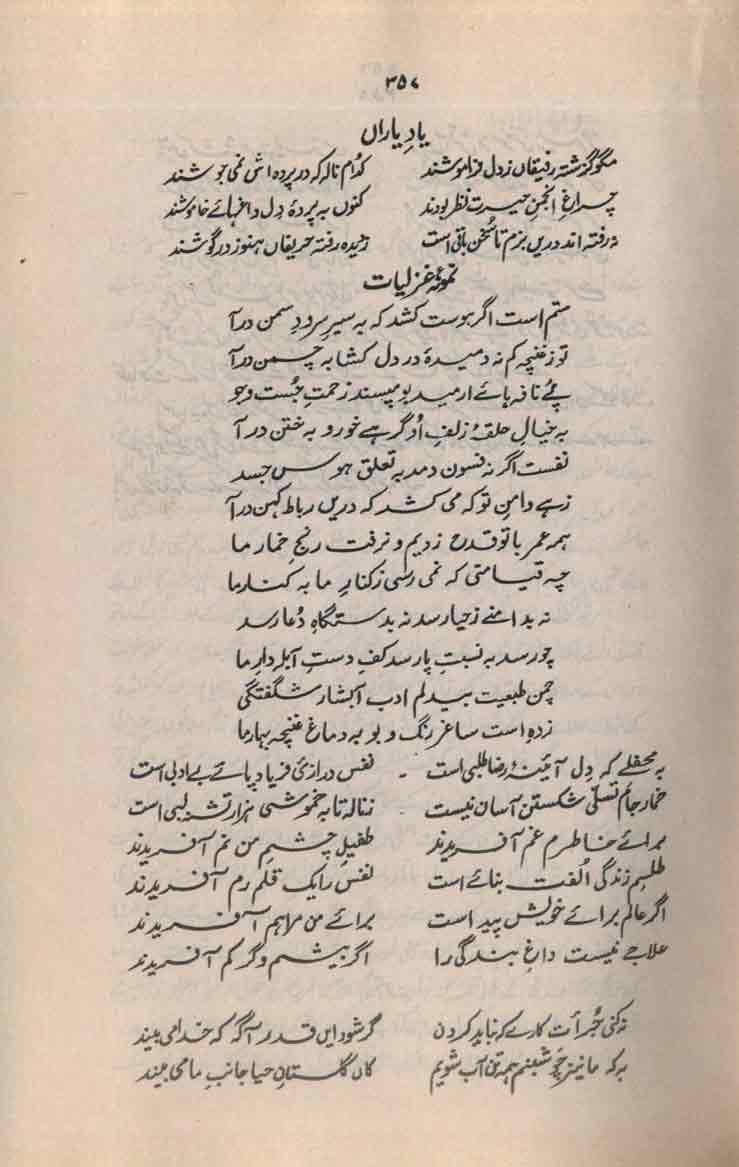 ۳۵۷
یادِ یاراں
مگو گزشتہ رفیقاں ز دل فراموشند کدام نالہ کہ در پردہ اش نمی جوشند
چراغِ انجمنِ حیرت نظر بودند کنوں بہ پردۂ دِل داغہائے خاموشند
نہ رفتہ اند دریں بزم تا سخن باقی است ز دیدہ رفتہ حریفاں ہنوز در گوشند
نمونۂ غزلیات
ستم است اگر ہوست کشد کہ بہ سیرِ سرو و سمن در آ
تو ز غنچہ کم نہ دمیدۂ در دل کشا بہ چمن در آ
پئے نافہ ہائے ارمیدہ بو مپسند زحمتِ جُست و جو
بہ خیالِ حلقۂ زلفِ اُو گرہے خور و بہ ختن در آ
نفست اگر نہ فسوں دمد بہ تعلقِ ہوسِ جسد
زہے دامنِ تو کہ می کشد کہ دریں رباطِ کہن در آ
ہمہ عمر با تو قدح زدیم و نرفت رنجِ خمارِ ما
چہ قیامتی کہ نمی رسی ز کنارِ ما بہ کنارِ ما
نہ بدامنے ز حیا رسد نہ بدستگاہِ دُعا رسد
چو رسد بہ نسبتِ پا رسد کفِ دستِ آبلہ دارِ ما
چمنِ طبیعتِ بیدلم ادب آبشارِ شگفتگی
زدہ است ساغرِ رنگ و بو بہ دماغِ غنچہ بہارِ ما
بہ محفلے کہ دِل آئینۂ رضا طلبی است نفس درازیٔ فریاد پائے بے ادبی است
خمارِ جامِ تسلّی شکستن آساں نیست ز نالہ تا بہ خموشی ہزار تشنہ لبی است
برائے خاطرم غم آفریدند طفیلِ چشمِ من نم آفریدند
طلسمِ زندگی اُلفت بنائے است نفس را یک قلم رم آفریدند
اگر عالم برائے خویش پیدا است برائے من مرا ہم آفریدند
علاجے نیست داغِ بندگی را اگر بیشم وگر کم آفریدند
نہ کنی جُرأت کارے کہ نباید کردن گر شود ایں قدر آگہ کہ خدا می بیند
بہ کہ ما نیز چو شبنم ہمہ تن آب شویم کاں گلستانِ حیا جانبِ ما می بیند